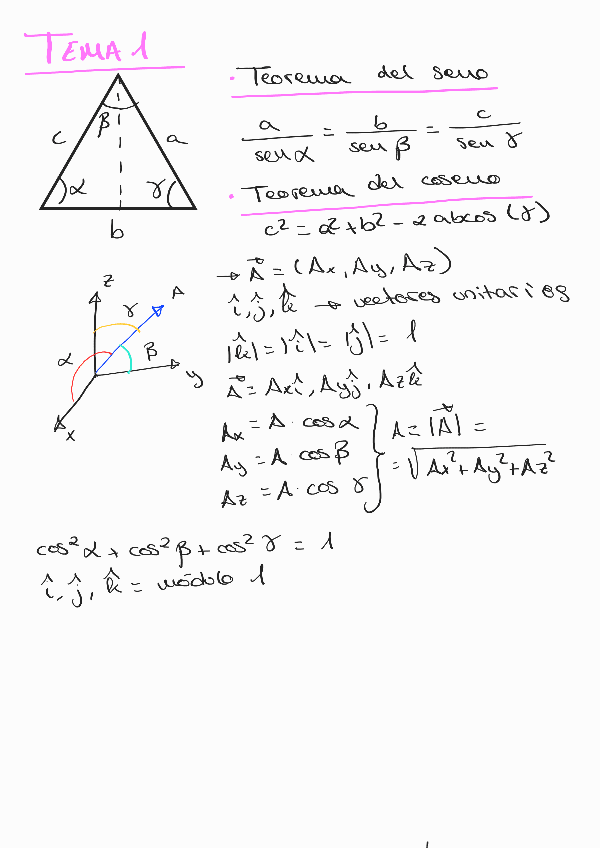 TEMA 1
· Teorema del seno
β
c
a
α
γ
b
a/sen α = b/sen β = c/sen γ
· Teorema del coseno
c² = a² + b² - 2 abcos (γ)
z
γ
A
α
β
y
x
→ A⃗ = (Ax, Ay, Az)
î, ĵ, k̂ → vectores unitarios
|k̂| = |î| = |ĵ| = 1
A⃗ = Ax î, Ay ĵ, Az k̂
Ax = A · cos α
Ay = A cos β
Az = A · cos γ
A = |A⃗| =
= √Ax² + Ay² + Az²
cos² α + cos² β + cos² γ = 1
î, ĵ, k̂ = módulo 1